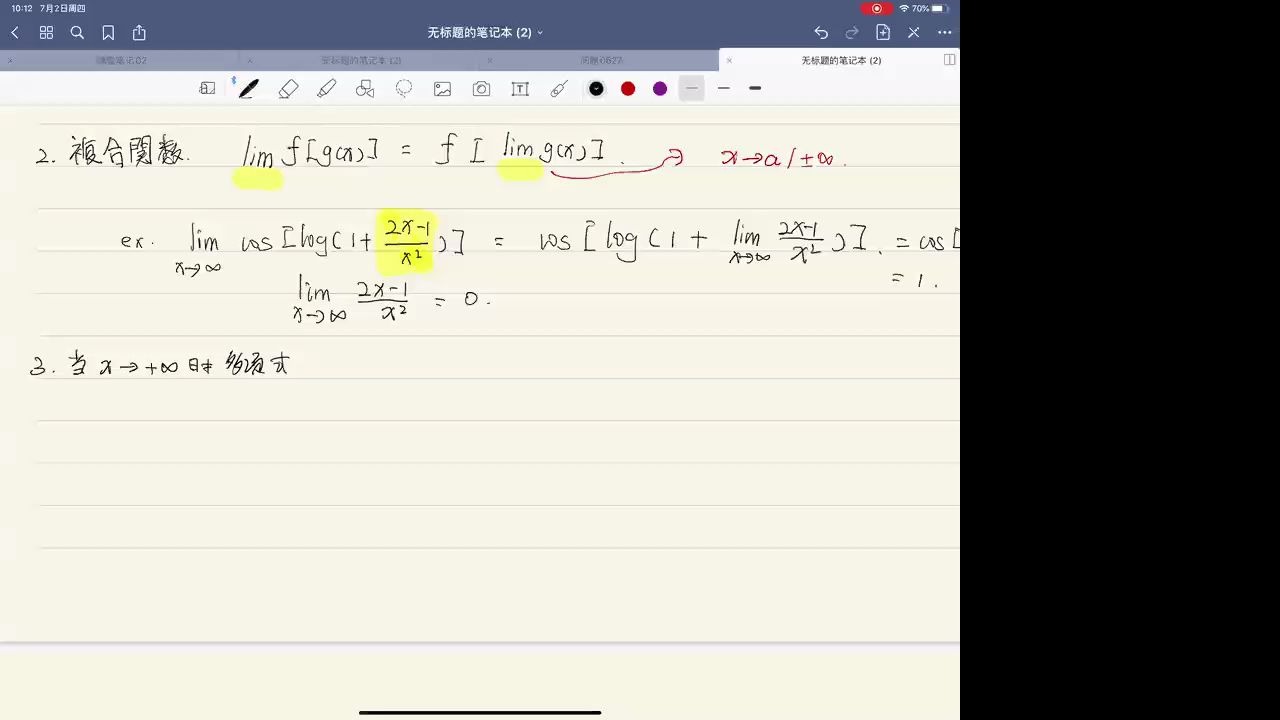 10:12 7月2日周四
70%
无标题的笔记本 (2)
无标题的笔记本 (2)
无标题的笔记本 (2)
2. 複合関数. lim f[g(x)] = f[lim g(x)]. x→a/±∞.
ex. lim x→∞ cos[log(1+ 2x-1/x²)] = cos[log(1+ lim x→∞ 2x-1/x²)]. = cos[
= 1.
lim x→∞ 2x-1/x² = 0.
3. 当 x→+∞ 时 多项式